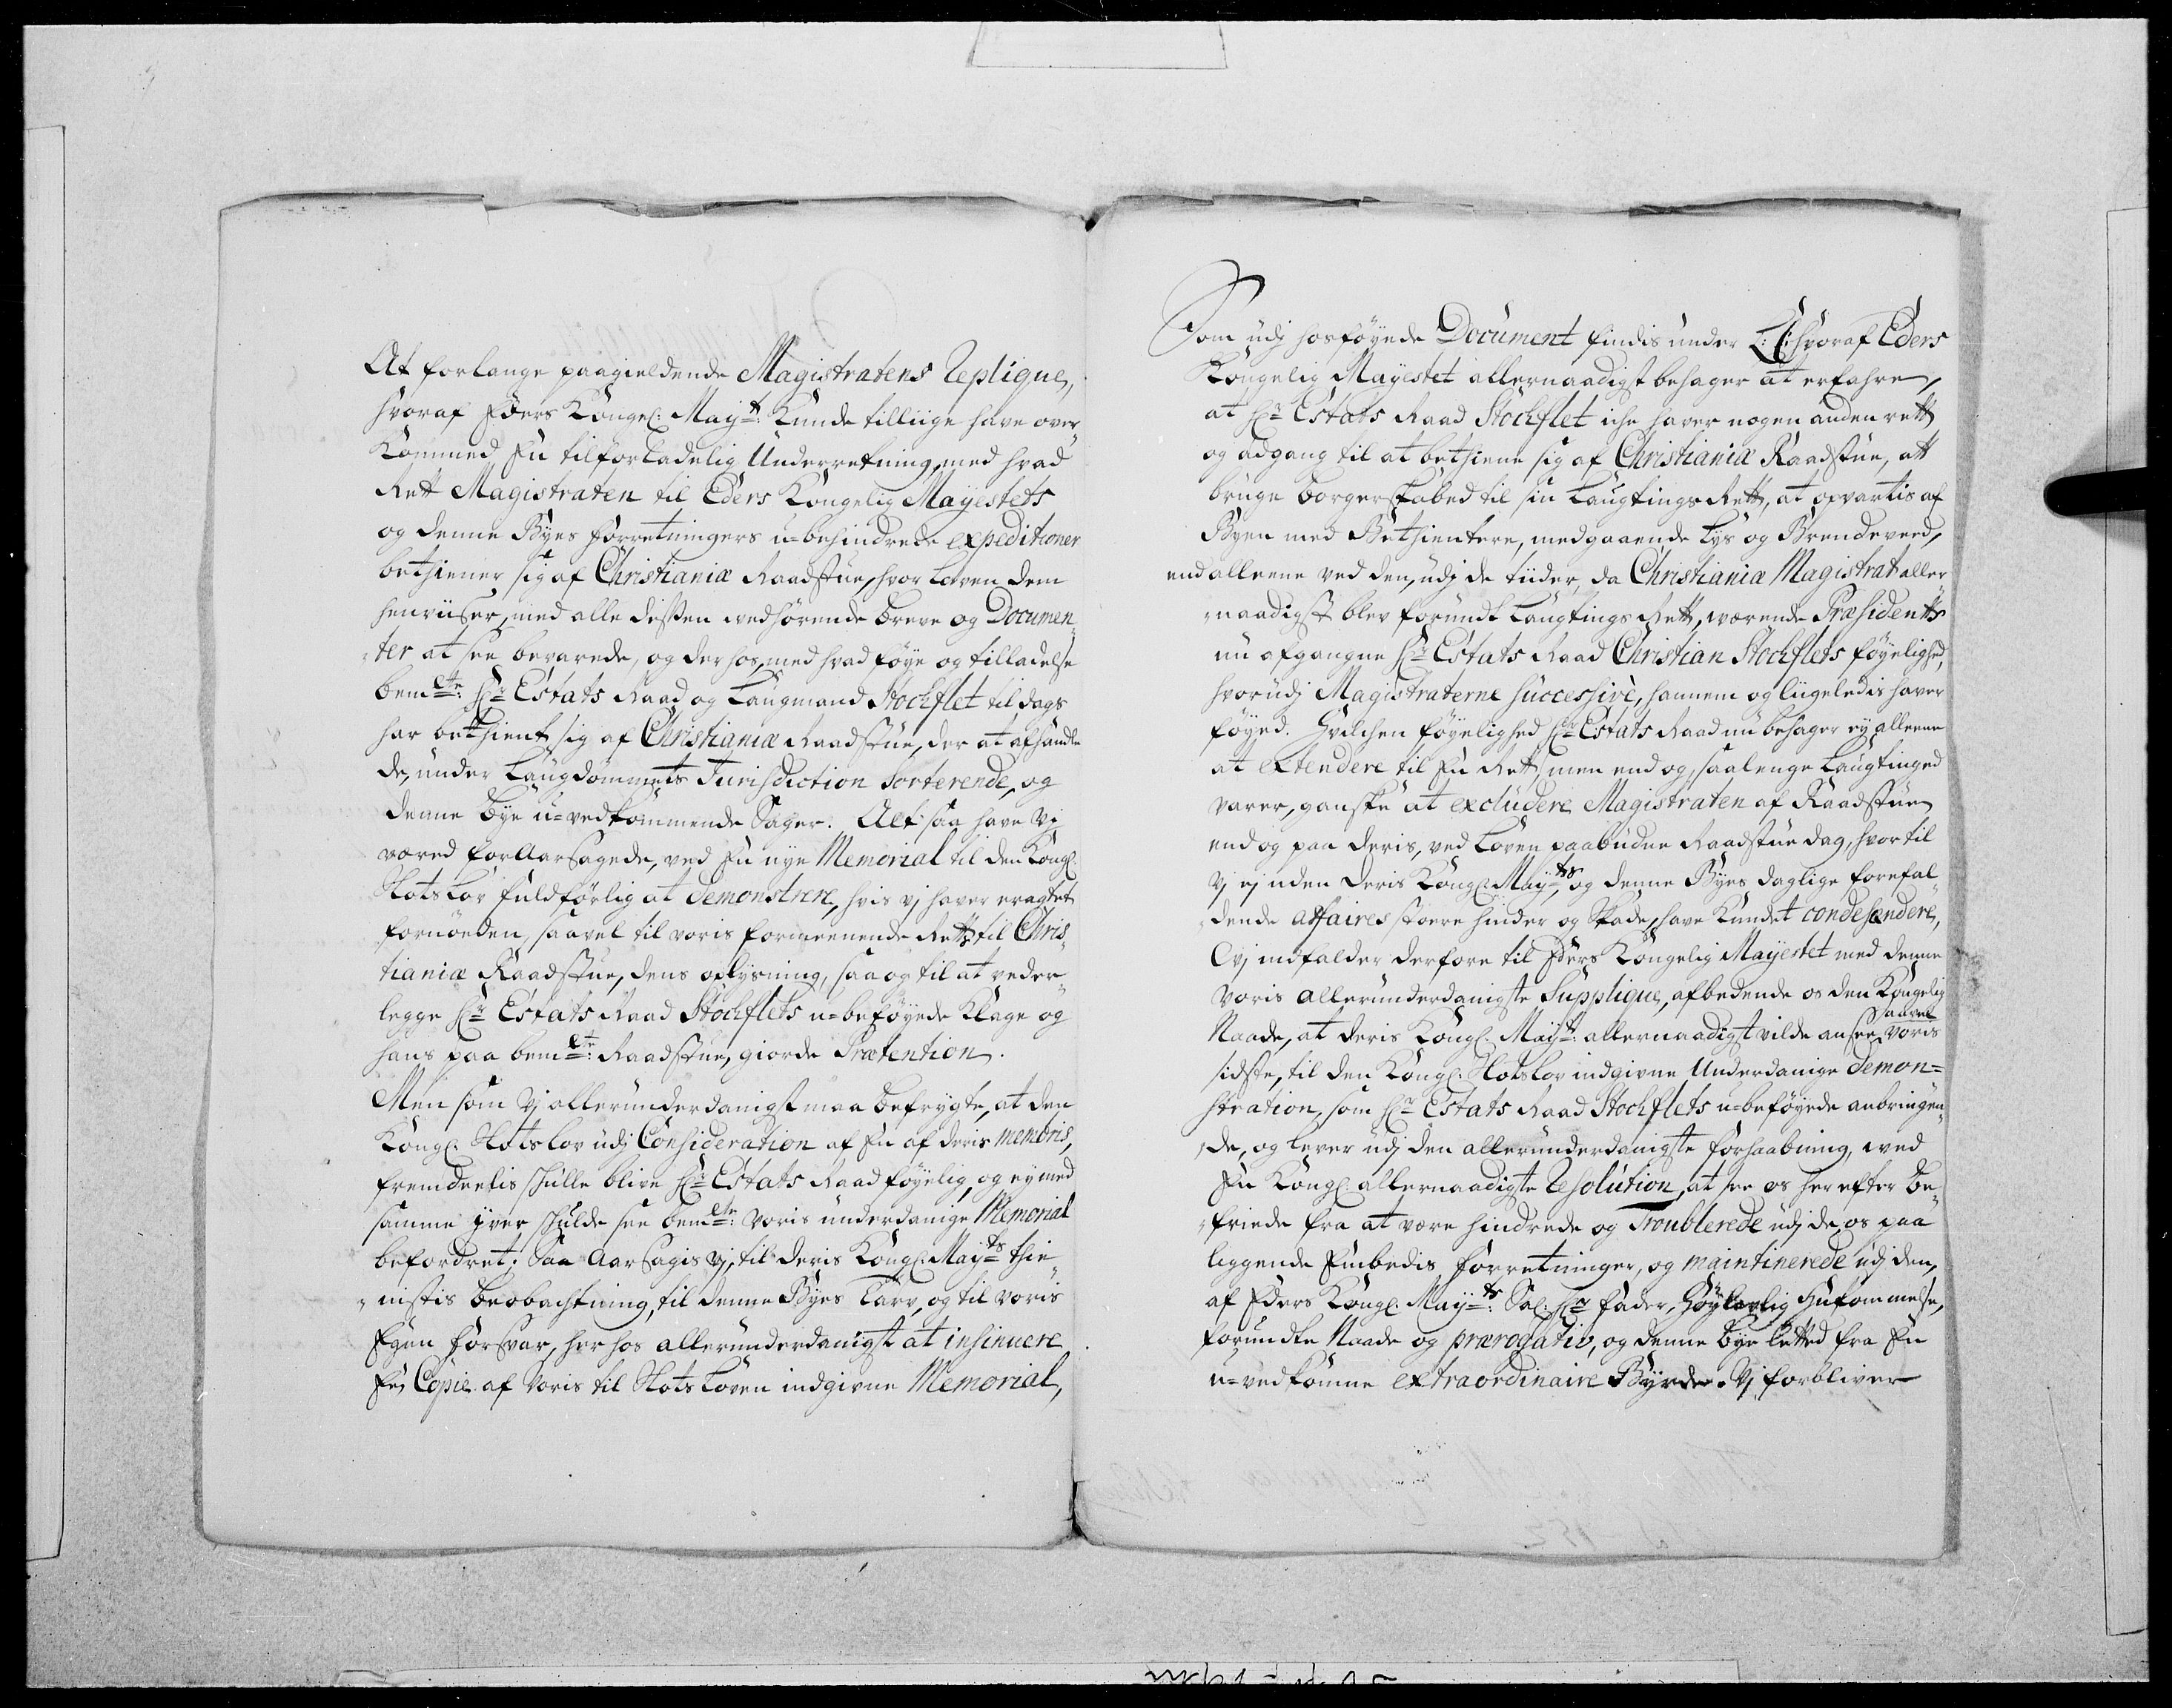 At forlange paagieldende Magistratens Replique,
hvoraf Eders Kongel: Mayt: Kunde tilliige have over
Kommed En tilforladelig Underretning, med hvad
Rett Magistraten til Eders Kongelig Mayestets
og denne Byes forretningers u-behindrede expeditioner
bethiener sig af Christiania Raadstue, hvor Loven dem
henviiser, med alle desten vedhørende breve og Documen¬
ter at see bevarede, og derhos, med hvad føye og tilladelse
bemelte: Hr Estats Raad og Laugmand Stockflet til dags
har bethient sig af Christianiæ Raadstue, der at afhandle
de, under Laugdommets Jurisdiction Sorterende, og
denne bye u-vedkommende Sager. Alt saa have Vj
været foraarsagede, ved En nye Memorial til den Kongl.
Slots Lov fuldførlig at demonstrere, hvis vj haver eragtet
fornøeden, saavel til voris formeenende Rett til Chris¬
tianiæ Raadstue, dens oplysning, saa og til at veder¬
legge Hr Estats Raad Stockflets u-beføyede Klage og
hans paa bemelte: Raadstue, giorde Prætention.
Men som Vj allerunderdanigst maa befrygte, at den
Kongl. Slotslov udj Consideration af En af deris membris,
fremdeelis skulle blive Hr Estats Raad føyelig, og ey med
samme iver skulde see bemelte: voris underdanige Memorial
befordret; Saa Aarsagis Vj, til deris Kongl. Mayts thie¬
nistis beobachtning, til denne Byes Tarv, og til voris
Egen forsvar, her hos allerunderdanigst at insinuere
En Copie af Voris til Slots Loven indgivne Memorial,
Som udj hosføyede Document findis under L: C: hvoraf Eders
Kongelig Mayestet allernaadigst behager at erfahre,
at Hr Estats Raad Stockflet iche haver nogen anden rett
og adgang til at bethiene sig af Christianiæ Raadstue, att
bruge borgerskabed til sin Laugtings Rett, at opvartis af
Byen med Bethientere, medgaaende Lys og Brendeveed,
end alleene ved den, udj de tiider, da Christiania Magistrat aller
naadigst blev forundt Laugtings Rett, værende Præsidents
nu afgangne Hr Estats Raad Christian Stockflets føyelighed,
hvorudj Magistraterne successivè, hannem og liigeledis haver
føyed. Hvilchen føyelighed Hr Estats Raad nu behager ey alleene
at extendere til En Rett, men end og, saalenge Laugtinged
varer, ganske at excludere Magistraten af Raadstuen
end og paa deris, ved Loven paabudne Raadstue dag, hvortil
Vj ej uden deris Kongl. Mayts og denne Byes daglige forefal¬
dende affaires støere hinder og Skade, have Kundet condescendere,
Vj indfalder derfore til Eders Kongelig Mayestet med denne
Voris allerunderdanigste Supplique, afbedende os den Kongelig
Naade, at deris Kongl. Mayt: allernaadigst vilde ansee saavel voris
sidste, til den Kongl. Slotslov indgivne Underdanige demon=
stration, som Hr Estats Raad Stockflets u-beføyede anbringen¬
de, og lever udj den allerunderdanigste forhaabning, ved
En Kongl. allernaadigste Resolution, at see os her efter be¬
friede fra at være hindrede og Troublerede udj de os paa
liggende Embedis forretninger, og maintinerede udj den,
af Eders Kongl. Mayts: Sal: Hr fader, Høylovlig Hukommelse,
forundte Naade og prærogativ, og denne bye letted fra En
u-vedkomne extraordinaire Byrde. Vj forbliver